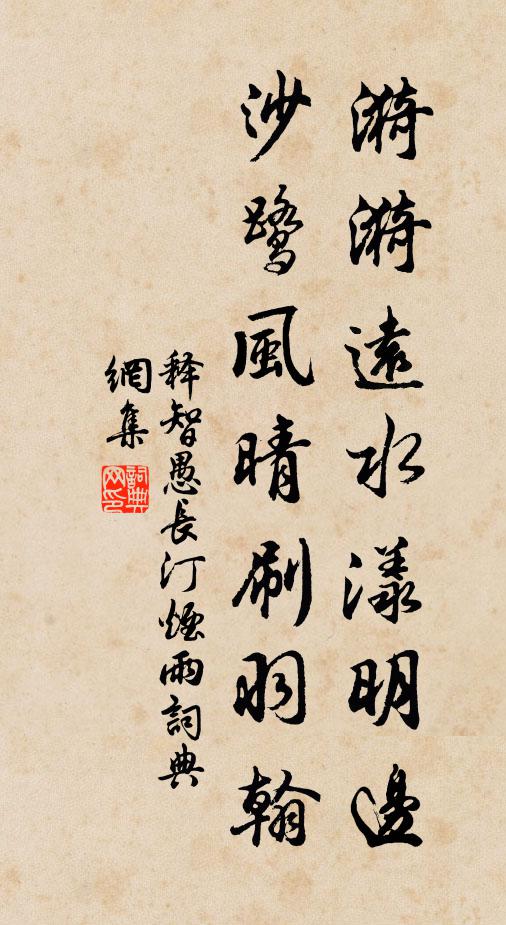 漪漪遠水漾明邊
沙鹭風晴刷羽翰
释智愚長汀煙雨詞典
網集
詞典網印